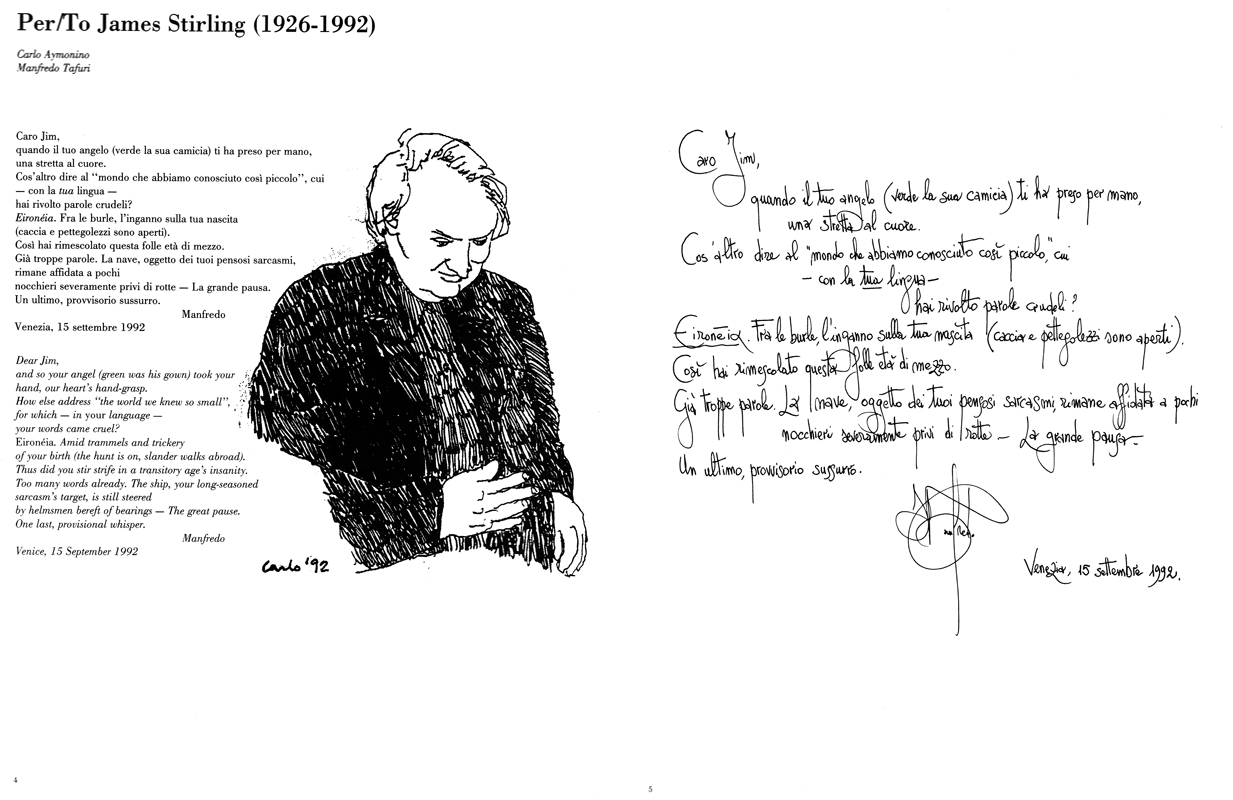 Per/To James Stirling (1926-1992)
Carlo Aymonino
Manfredo Tafuri
Caro Jim,
quando il tuo angelo (verde la sua camicia) ti ha preso per mano,
una stretta al cuore.
Cos'altro dire al “mondo che abbiamo conosciuto così piccolo”, cui
— con la tua lingua —
hai rivolto parole crudeli?
Eironéia. Fra le burle, l'inganno sulla tua nascita
(caccia e pettegolezzi sono aperti).
Così hai rimescolato questa folle età di mezzo.
Già troppe parole. La nave, oggetto dei tuoi pensosi sarcasmi,
rimane affidata a pochi
nocchieri severamente privi di rotte — La grande pausa.
Un ultimo, provvisorio sussurro.
Manfredo
Venezia, 15 settembre 1992
Dear Jim,
and so your angel (green was his gown) took your
hand, our heart's hand-grasp.
How else address “the world we knew so small”,
for which — in your language —
your words came cruel?
Eironéia. Amid trammels and trickery
of your birth (the hunt is on, slander walks abroad).
Thus did you stir strife in a transitory age's insanity.
Too many words already. The ship, your long-seasoned
sarcasm's target, is still steered
by helmsmen bereft of bearings — The great pause.
One last, provisional whisper.
Manfredo
Venice, 15 September 1992
Carlo '92
4
Caro Jim,
quando il tuo angelo (verde la sua camicia) ti ha preso per mano,
una stretta al cuore.
Cos'altro dire al “mondo che abbiamo conosciuto così piccolo,” cui
— con la tua lingua —
hai rivolto parole crudeli?
Eironéia. Fra le burle, l'inganno sulla tua nascita (caccia e pettegolezzi sono aperti).
Così hai rimescolato questa folle età di mezzo.
Già troppe parole. La nave, oggetto dei tuoi pensosi sarcasmi, rimane affidata a pochi
nocchieri severamente privi di rotte — La grande pausa —
Un ultimo, provvisorio sussurro.
Venezia, 15 settembre 1992.
5